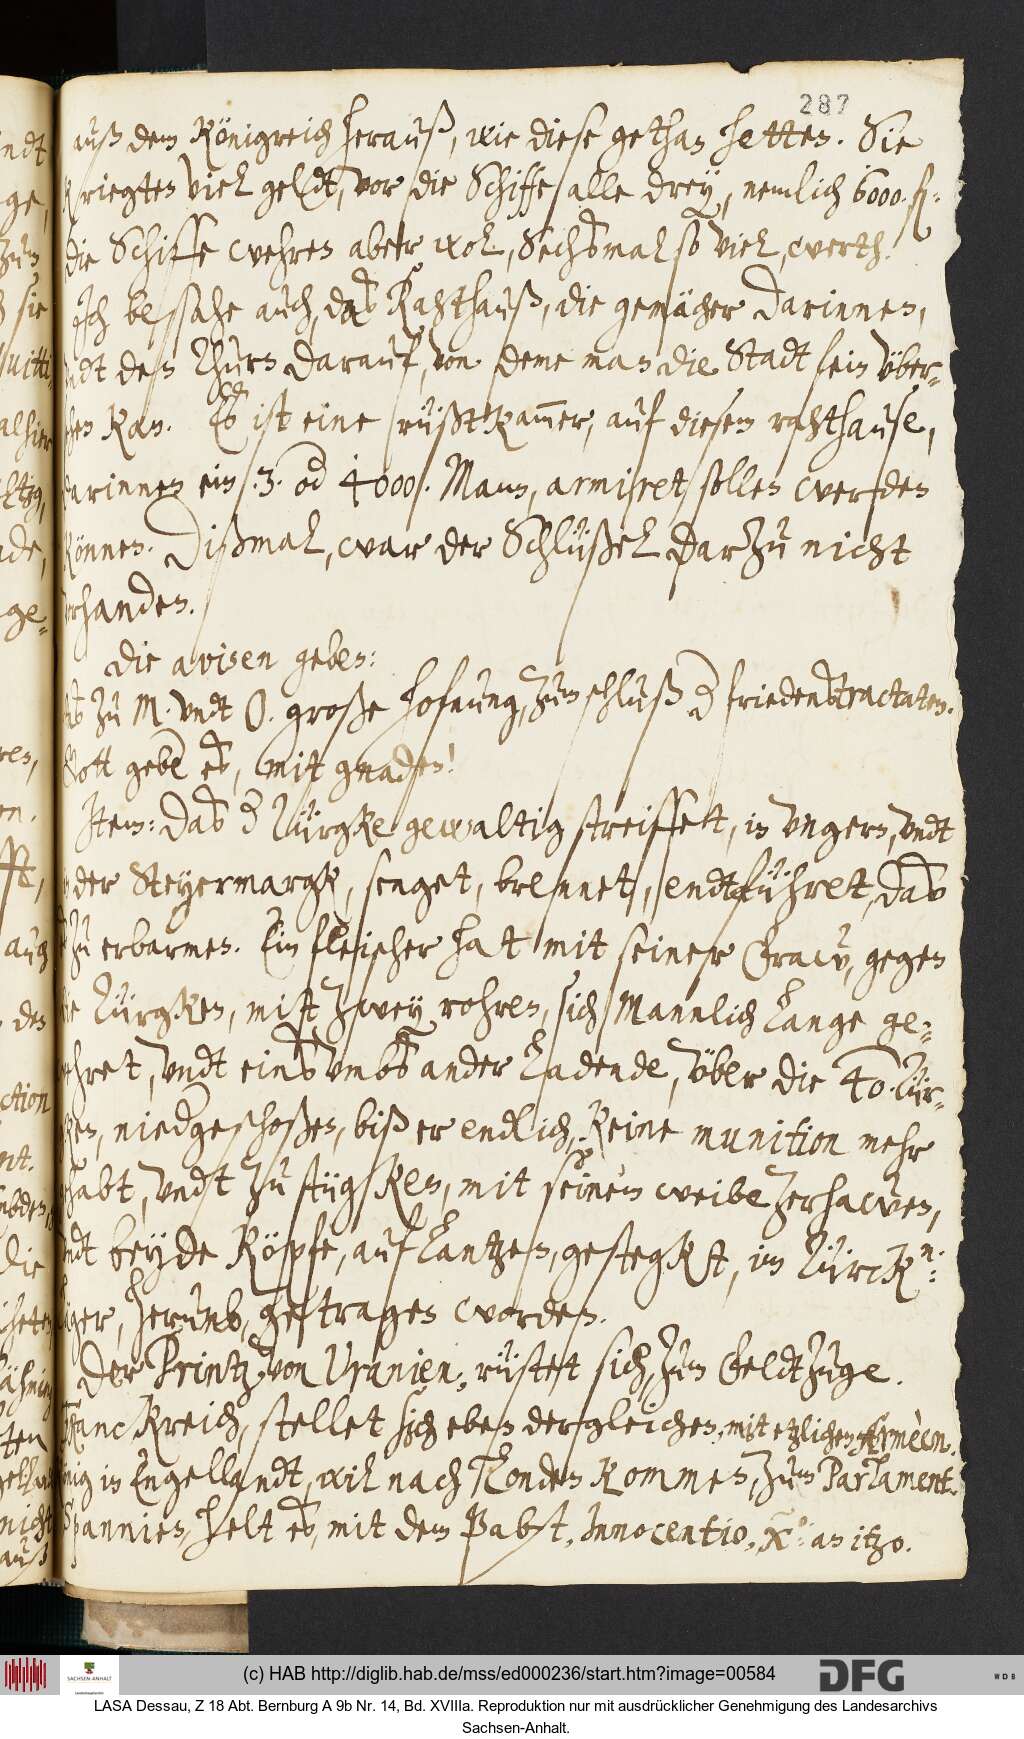 287
auß dem Königreich herauß, wie diese gethan hetten. Sie
Kriegten viel geldt, vor die Schiffe alle drey, nemlich 6000. {Thlr.}
die Schiffe wehren aber wol, Sechsmal so viel, werth.
Ich besahe auch, das Rahthauß, die gemächer darinnen,
undt den Thurn darauf, von deme man die Stadt fein über-
sehen kan. Es ist eine rüßtkammer, auf diesem rahthause,
darinnen ein .3. od 4000. Mann, armiret sollen werden
können. Dißmal, war der Schlüßel darzu nicht
verhanden.
Die avisen geben:
das zu M. undt O. große hofnung, zum schluß d friedenstractaten.
Gott gebe es, mit gnaden!
Item: das d Türgke gewaltig streiffet, in Ungern, undt
in der Steyermargk, senget, brennet, endtführet, das
es zu erbarmen. Ein fleischer hat mit seiner Fraw, gegen
die Türgken, mit zwey rohren, sich Mannlich lange ge-
wehret, undt eins umbs ander ladende, über die 40. Tür-
ken, niedgeschoßen, biß er endlich, keine munition mehr
gehabt, undt zu stügken, mit seinem weibe zerhawen,
undt beyde köpfe, auf lantzen, gesteckt, im Türckn:
läger, herumb, getragen worden.
Der Printz von Uranien, rüstet sich, zum Feldtzuge.
Franckreich, stellet sich eben dergleichen, mit etzlichen Arméen.
König in Engellandt, wil nach Londen kommen, zum Parlament.
Spannien, helt es, mit dem Pabst, Innocentio, Xo. an itzo.
(c) HAB http://diglib.hab.de/mss/ed000236/start.htm?image=00584
SACHSEN-ANHALT
DFG
WDB
LASA Dessau, Z 18 Abt. Bernburg A 9b Nr. 14, Bd. XVIIIa. Reproduktion nur mit ausdrücklicher Genehmigung des Landesarchivs
Sachsen-Anhalt.